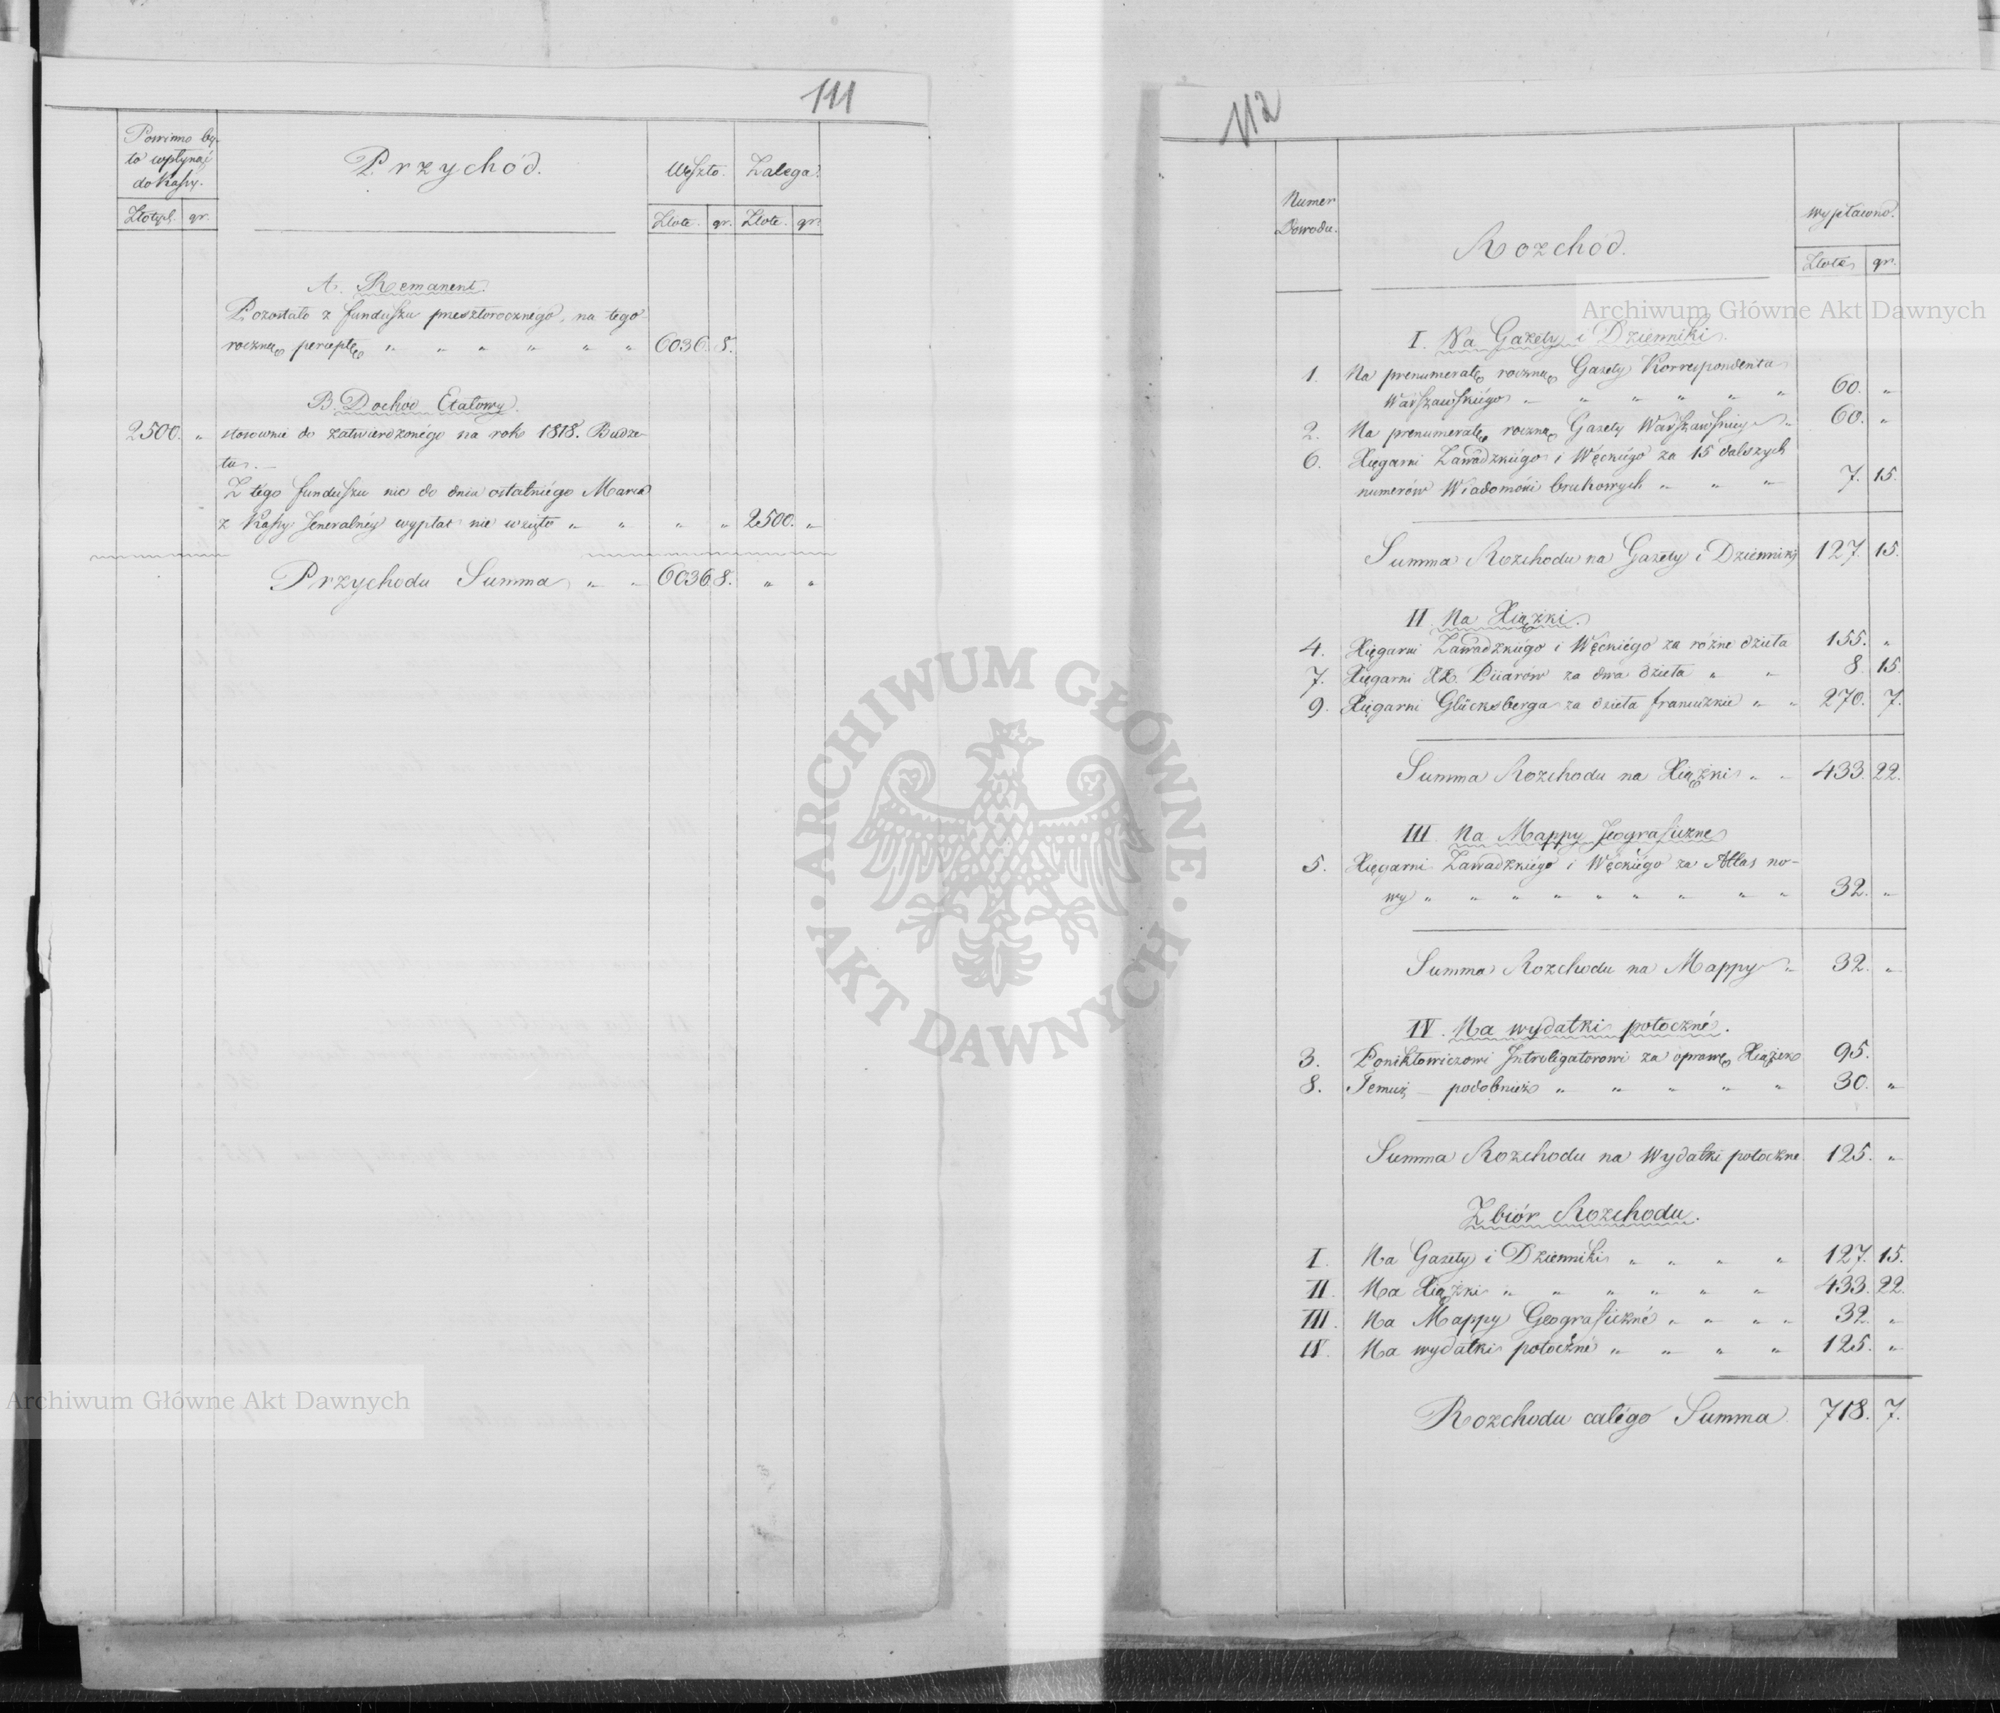 111
Powinno by-
ło wpłynąć
do Kassy.
Przychód.
Weszło. Zalega.
Złotych. gr.
Złote. gr. Złote. gr.
A. Remanent.
Pozostało z funduszu przeszłorocznégo, na tego
roczną perceptę „ „ „ „ „ „ 6036. 8.
B. Dochod Etatowy.
2500. „ stosownie do zatwierdzonégo na rok 1818. Budże-
tu. —
Z tégo funduszu nic do dnia ostatniégo Marca
z Kassy Jeneralnéy wypłat nie wzięto „ „ „ „ 2500. „
Przychodu Summa „ „ 6036 8. „ „
112
Numer
Dowodu.
Rozchód.
wypłacono.
Złote gr.
I. Na Gazety i Dzienniki.
1. Na prenumeratę roczną Gazety Korrespondenta
Warszawskiégo „ „ „ „ „ „ 60. „
2. Na prenumeratę roczną Gazety Warszawskiey „ 60. „
6. Xięgarni Zawadzkiégo i Węckiégo za 15 dalszych
numerów Wiadomości brukowych „ „ „ 7. 15.
Summa Rozchodu na Gazety i Dzienniki 127. 15.
II. Na Xiążki.
4. Xięgarni Zawadzkiégo i Węckiégo za różne dzieła 155. „
7. Xięgarni XX. Piiarów za dwa dzieła „ „ 8. 15.
9. Xięgarni Glücksberga za dzieła francuzkie „ „ 270. 7.
Summa Rozchodu na Xiążki „ „ 433. 22.
III. Na Mappy Jeograficzne
5. Xięgarni Zawadzkiégo i Węckiégo za Atlas no-
wy „ „ „ „ „ „ „ „ „ 32. „
Summa Rozchodu na Mappy „ 32. „
IV. Na wydatki potoczné.
3. Poniktowiczowi Introligatorowi za oprawę Xiążek 95.
8. Temuż — podobnież „ „ „ „ „ 30. „
Summa Rozchodu na Wydatki potoczne 125. „
Zbiór Rozchodu.
I. Na Gazety i Dzienniki „ „ „ „ 127. 15.
II. Na Xiążki „ „ „ „ „ „ 433. 22.
III. Na Mappy Geograficzné „ „ „ „ 32. „
IV. Na wydatki potoczné „ „ „ „ 125. „
Rozchodu całégo Summa 718. 7.
Archiwum Główne Akt Dawnych
ARCHIWUM GŁÓWNE · AKT DAWNYCH ·
Archiwum Główne Akt Dawnych